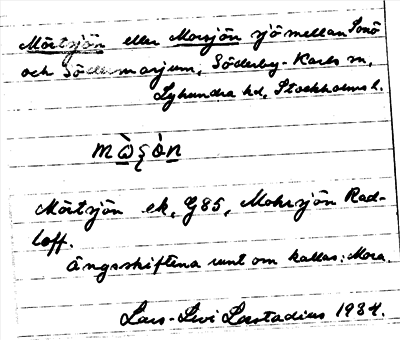 Mörtsjön eller Morsjön sjö mellan Svnö
och Södermarjum, Söderby-Karls sn,
Lyhundra hd, Stockholms l.
mὼʂὼn
Mörtsjön ek, G85, Mohrsjön Rad-
loff.
Ängsskiftena runt om kallas: Mora.
Lars-Levi Læstadius 1934.